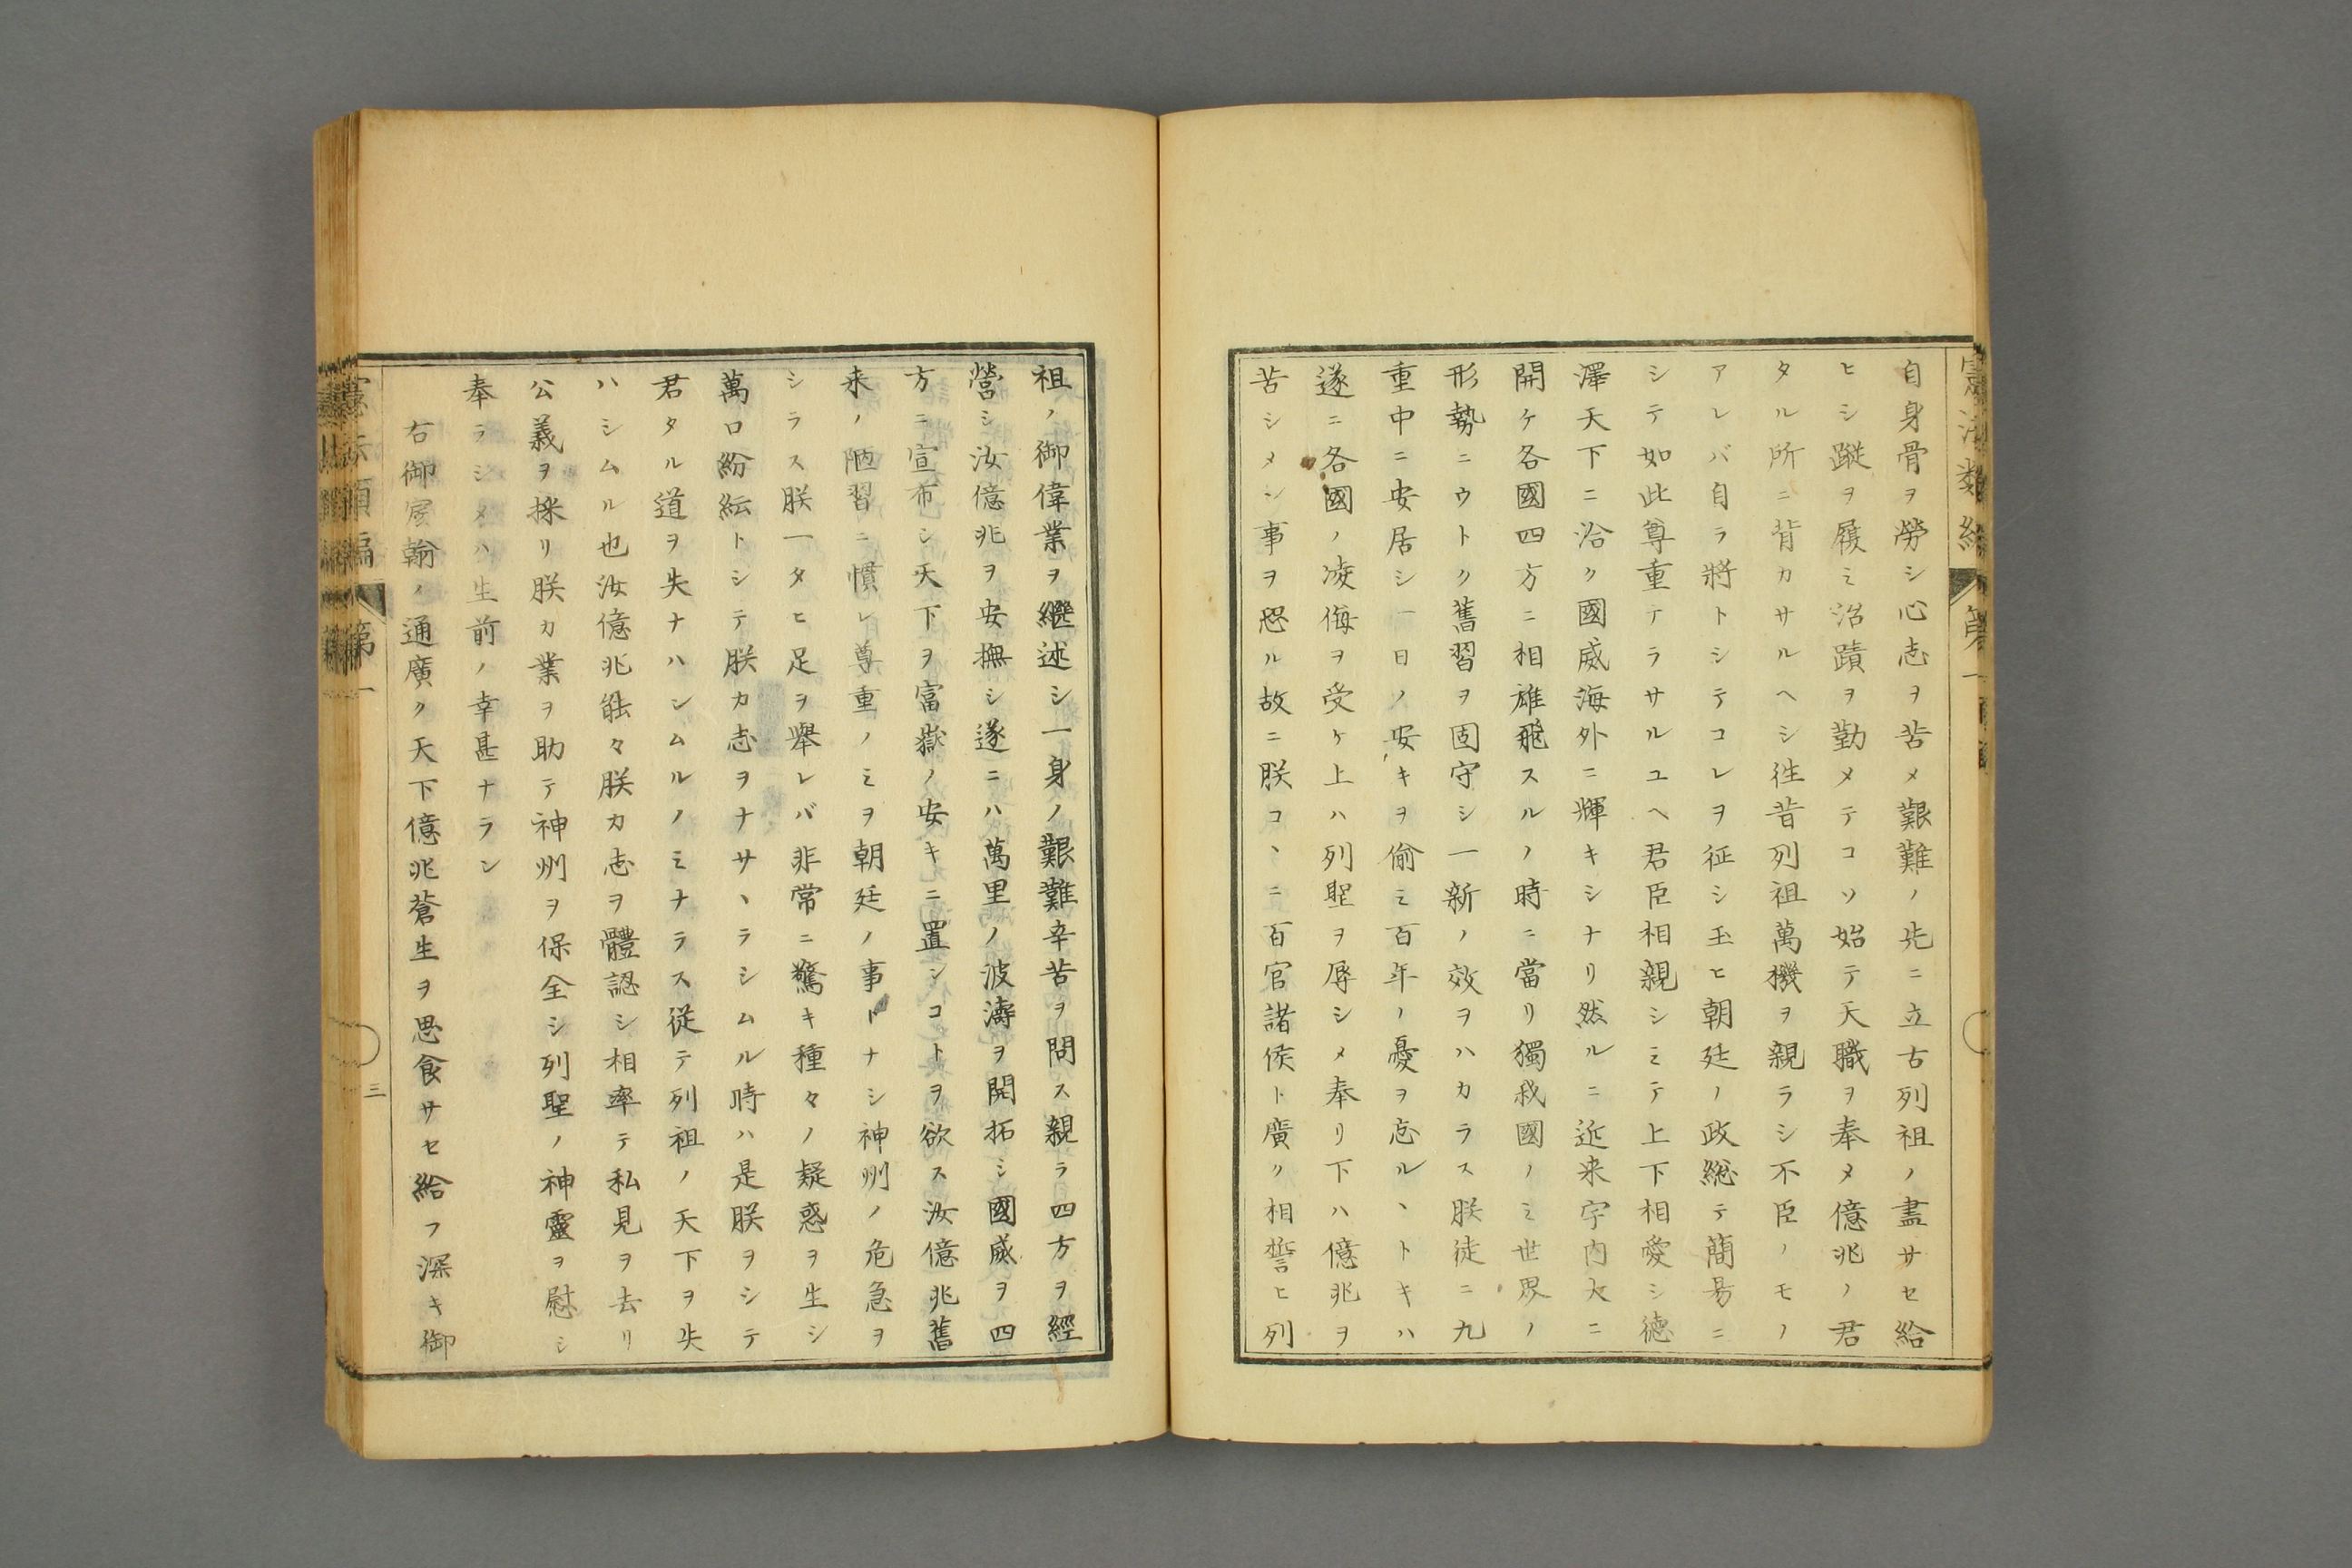 自身骨ヲ勞シ心志ヲ苦メ艱難ノ先ニ立古列祖ノ盡サセ給
ヒシ蹤ヲ履ミ治蹟ヲ勤メテコソ始テ天職ヲ奉メ億兆ノ君
タル所ニ背カサルヘシ徃昔列祖萬機ヲ親ラシ不臣ノモノ
アレバ自ラ將トシテコレヲ征シ玉ヒ朝廷ノ政総テ簡易ニ
シテ如此尊重テラサルユヘ君臣相親シミテ上下相愛シ徳
澤天下ニ洽ク國威海外ニ輝キシナリ然ルニ近来宇内大ニ
開ケ各國四方ニ相雄飛スルノ時ニ當リ獨我國ノミ世界ノ
形勢ニウトク舊習ヲ固守シ一新ノ效ヲハカラス朕徒ニ九
重中ニ安居シ一日ノ安キヲ偷ミ百年ノ憂ヲ忘ルヽトキハ
遂ニ各國ノ凌侮ヲ受ケ上ハ列聖ヲ辱シメ奉リ下ハ億兆ヲ
苦シメン事ヲ恐ル故ニ朕コヽニ百官諸侯ト廣ク相誓ヒ列
祖ノ御偉業ヲ継述シ一身ノ艱難辛苦ヲ問ス親ラ四方ヲ經
營シ汝億兆ヲ安撫シ遂ニハ萬里ノ波濤ヲ開拓シ國威ヲ四
方ニ宣布シ天下ヲ富嶽ノ安キニ置シコトヲ欲ス汝億兆舊
来ノ陋習ニ慣レ尊重ノミヲ朝廷ノ事トナシ神州ノ危急ヲ
シラス朕一タヒ足ヲ舉レバ非常ニ驚キ種々ノ疑惑ヲ生シ
萬口紛紜トシテ朕カ志ヲナサヽラシムル時ハ是朕ヲシテ
君タル道ヲ失ナハンムルノミナラス従テ列祖ノ天下ヲ失
ハシムル也汝億兆能々朕カ志ヲ體認シ相率テ私見ヲ去リ
公義ヲ採リ朕カ業ヲ助テ神州ヲ保全シ列聖ノ神靈ヲ慰シ
奉ラシメハ生前ノ幸甚ナラン
右御宸翰ノ通廣ク天下億兆蒼生ヲ思食サセ給フ深キ御
憲法類編 第一 三